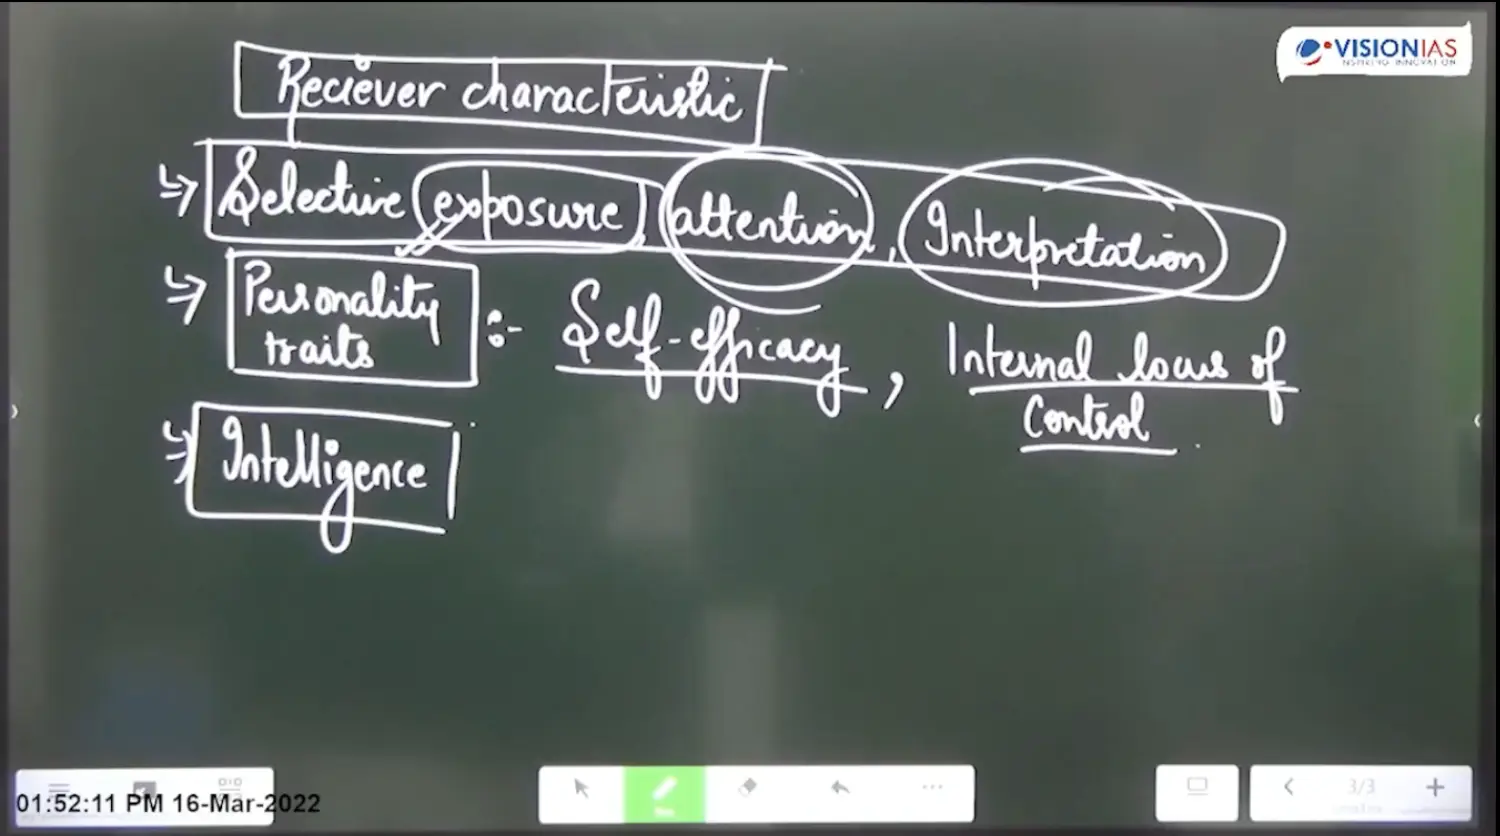 VISIONIAS
INSPIRING INNOVATION
Reciever characteristic
↳ Selective exposure, attention, Interpretation
↳ Personality traits :- Self-efficacy, Internal locus of Control
↳ Intelligence
3/3
01:52:11 PM 16-Mar-2022